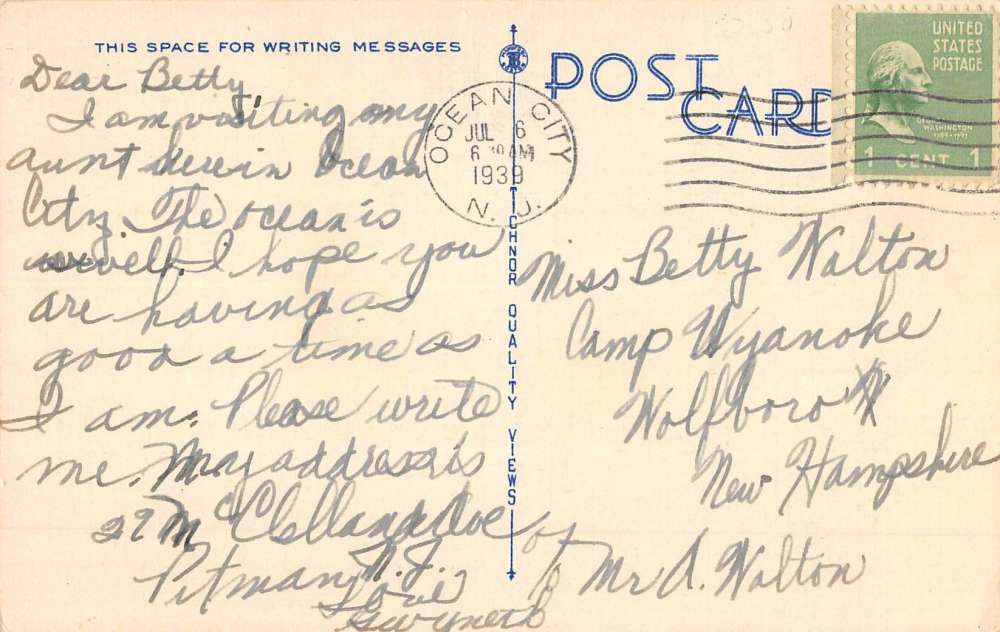 THIS SPACE FOR WRITING MESSAGES
Dear Betty,
I am visiting my
aunt here in Ocean
City. The ocean is
swell. I hope you
are having as
good a time as
I am. Please write
me. My address is
Mc Clelland Ave
Pitman, N.J.
Love
Gwyneth
POST
CARD
OCEAN CITY
JUL 6
AM
1939
N. J.
UNITED
STATES
POSTAGE
GEORGE
WASHINGTON
1789-1797
1 CENT 1
TICHNOR QUALITY VIEWS
Miss Betty Walton
Camp Wyanoke
Wolfboro
New Hampshire
c/o Mr A. Walton